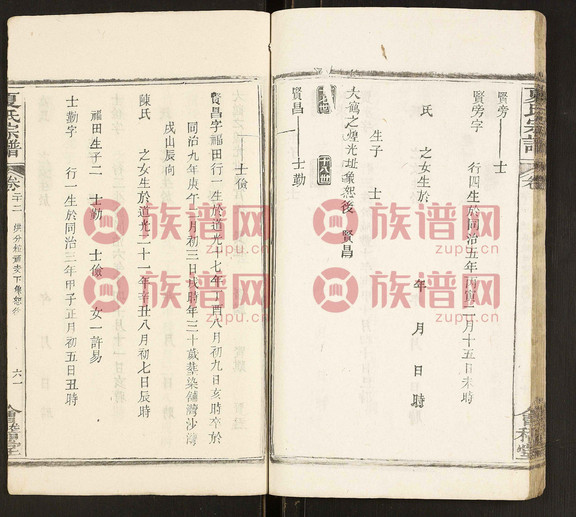 夏氏宗譜
卷
會和堂
賢旁 士
賢旁字 行四生於同治五年丙寅二月十五日未時
氏 之女生於 年 月 日 時
生子 士
大鶴之煌光址象恕後 賢昌
十八世
賢昌 士勤
士儉
賢昌字福田行一生於道光十七年丁酉八月初九日亥時卒於
同治九年庚午 月初三日戌時年三十歲葬染鋪灣沙灣
戌山辰向
陳氏 之女生於道光二十一年辛丑八月初七日辰時
福田生子二 士勤 士儉 女一許易
士勤字 行一生於同治三年甲子正月初五日丑時
夏氏宗譜
卷二十二
六一
會和堂
族谱网
www.zupu.cn
族谱网
www.zupu.cn
族谱网
www.zupu.cn
族谱网
www.zupu.cn